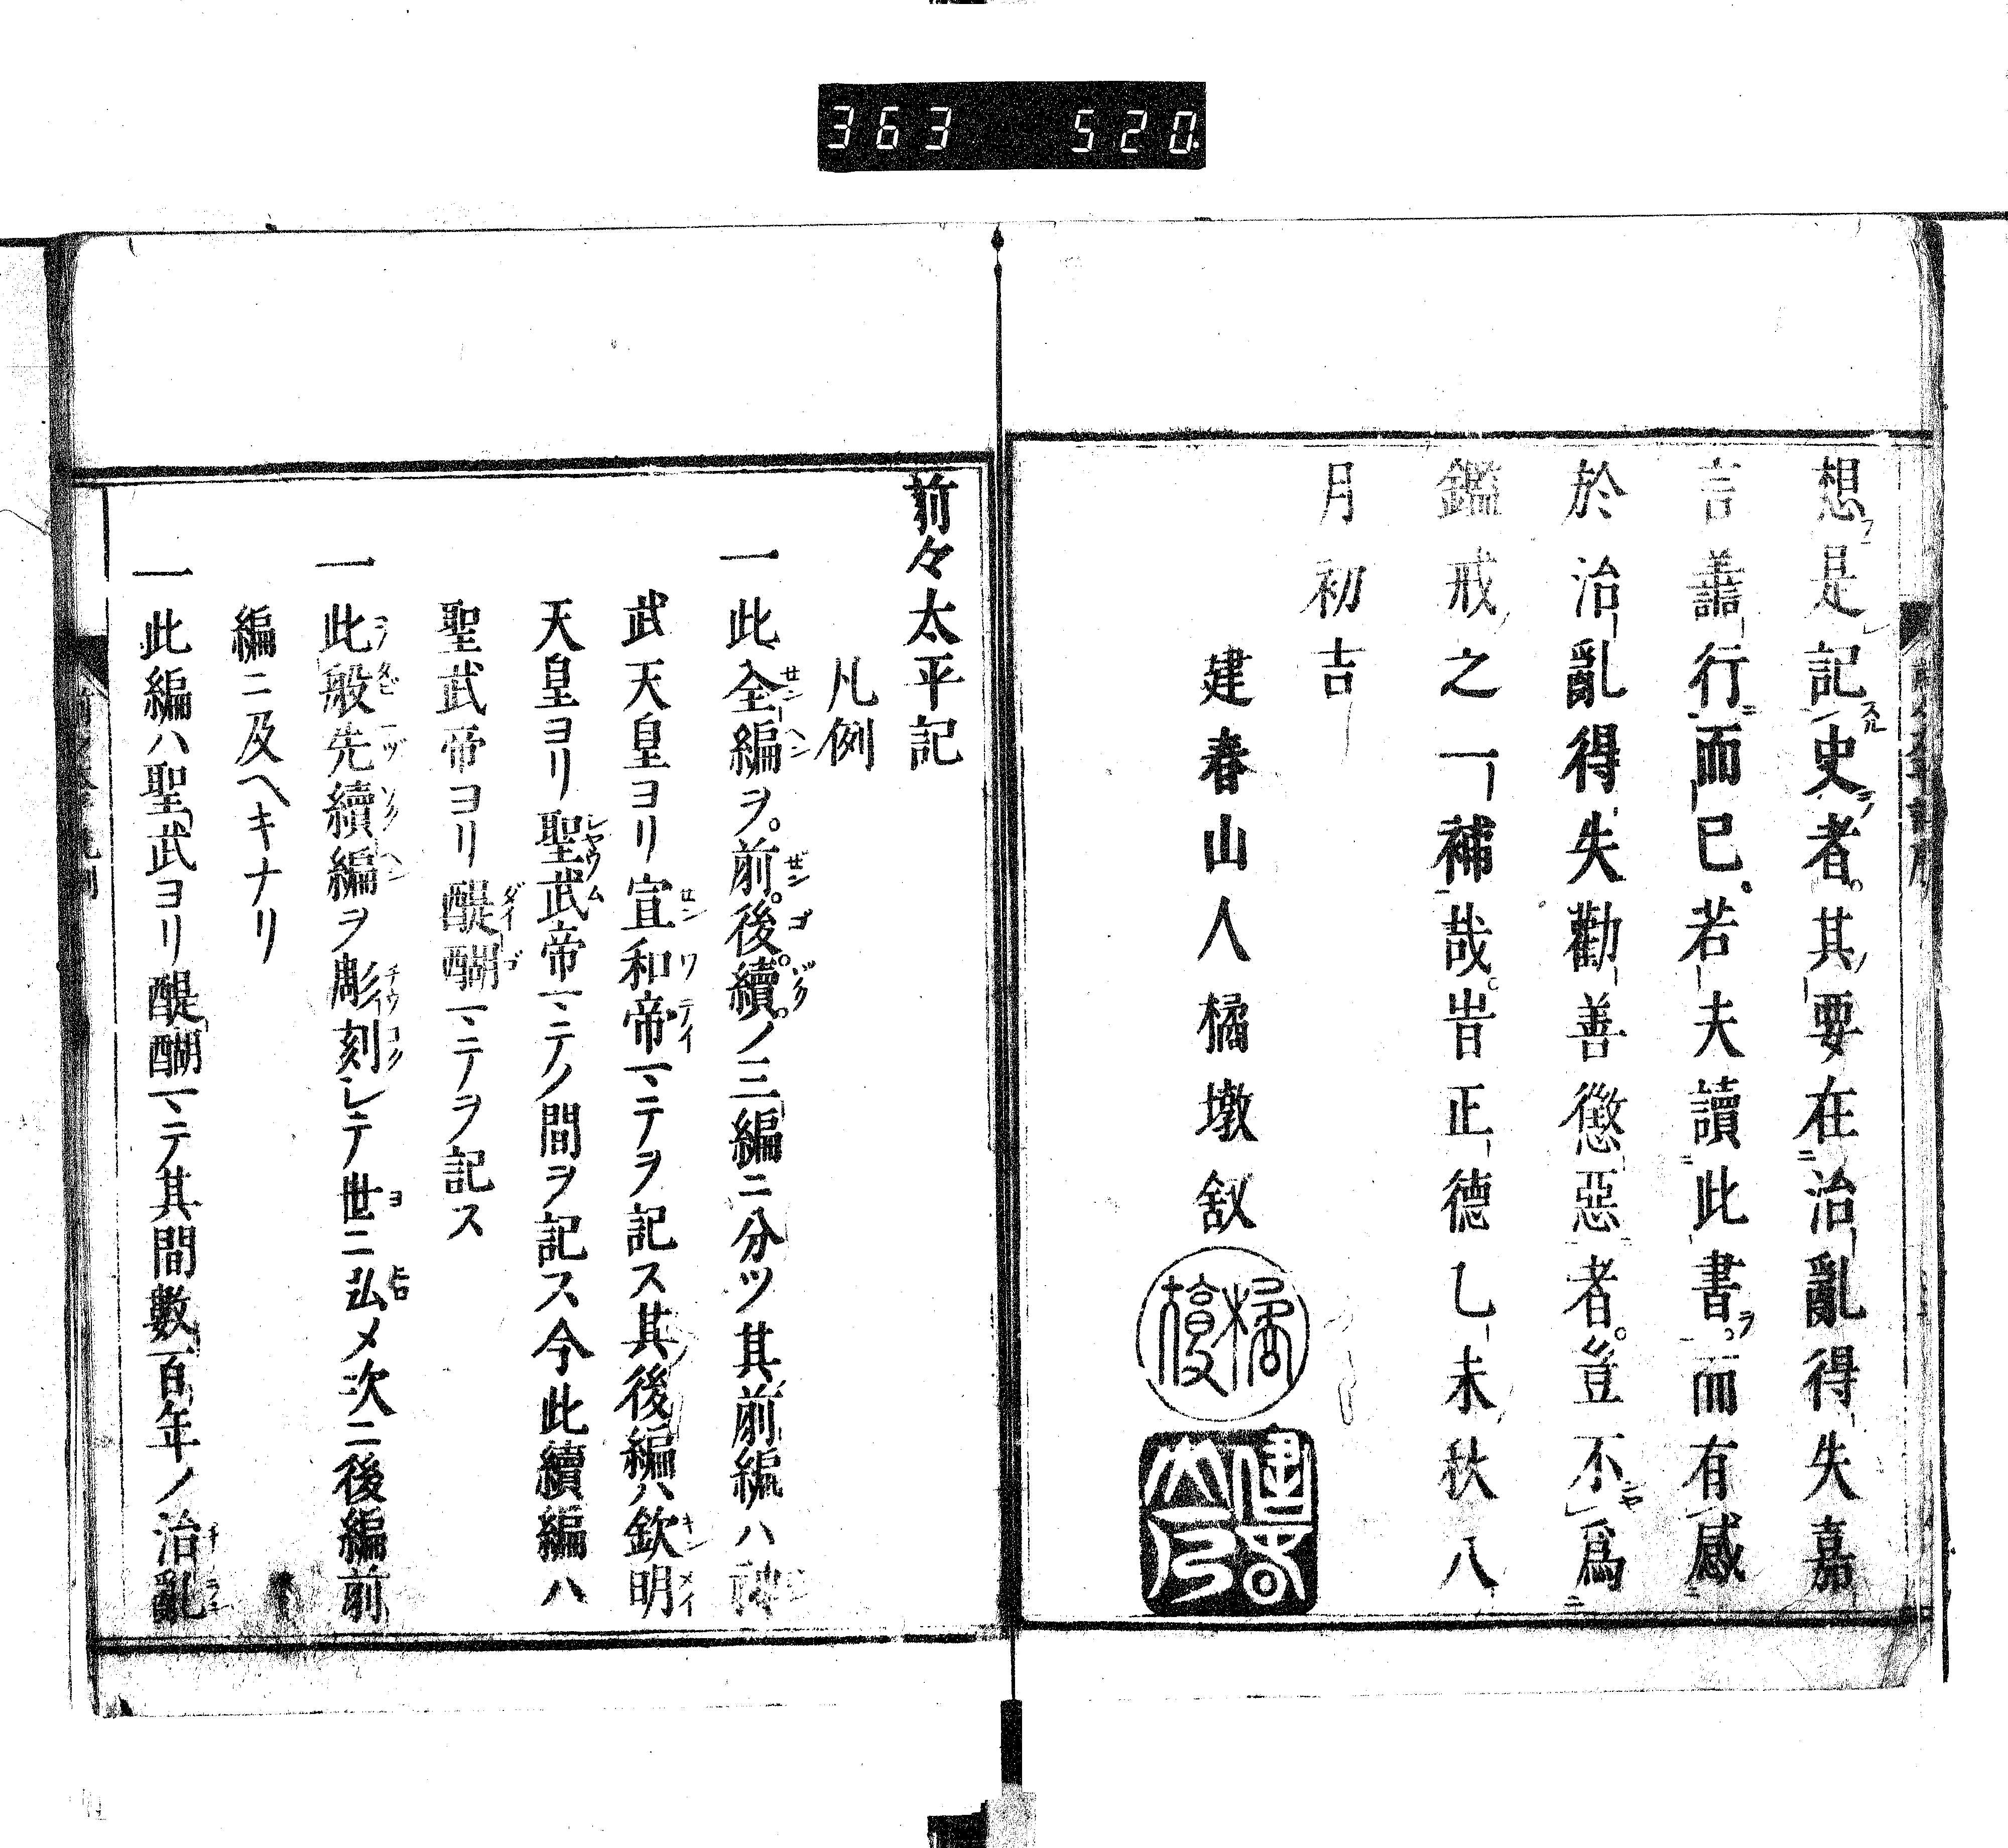 363 520
想是記史者。其要在治亂得失嘉
言譱行而已若夫讀此書。而有感
於治亂得失勸善懲惡者。豈不爲
鑑戒之一補哉。旹正德乙未秋八
月初吉
建春山人橘墩敘
前々太平記
凡例
一此全編ヲ。前。後。續。ノ三編ニ分ツ其前編ハ神
武天皇ヨリ宣和帝マテヲ記ス其後編ハ欽明
天皇ヨリ聖武帝マテノ間ヲ記ス今此續編ハ
聖武帝ヨリ醍醐マテヲ記ス
一此般先續編ヲ彫刻シテ世ニ弘メ次ニ後編前
編ニ及ヘキナリ
一此編ハ聖武ヨリ醍醐マテ其間數百年ノ治亂